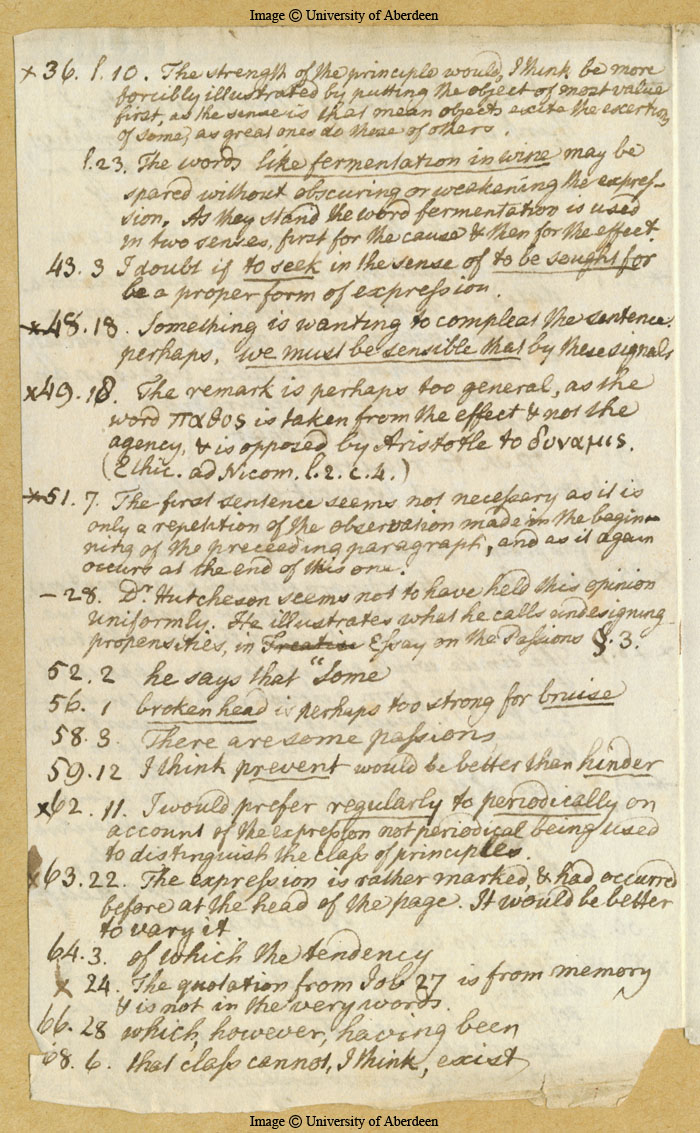 Image © University of Aberdeen
x 36. l. 10. The strength of the principle would, I think be more
forcibly illustrated by putting the object of most value
first, as the sense is that mean objects excite the exertions
of some, as great ones do those of others.
l. 23. The words like fermentation in wine may be
spared without obscuring or weakening the expres-
sion. As they stand the word fermentation is used
in two senses, first for the cause & then for the effect.
43. 3 I doubt if to seek in the sense of to be sought for
be a proper form of expression.
x 48. 18. Something is wanting to compleat the sentence.
perhaps, we must be sensible that by these signals
x 49. 18. The remark is perhaps too general, as the
word παθος is taken from the effect & not the
agency, & is opposed by Aristotle to δυναμις.
(Ethic. ad Nicom. l. 2. c. 4.)
x 51. 7. The first sentence seems not necessary as it is
only a repetition of the observation made in the begin-
ning of the preceeding paragraph, and as it again
occurs at the end of this one.
– 28. Dr Hutcheson seems not to have held this opinion
uniformly. He illustrates what he calls undesigning
propensities, in Treatise Essay on the Passions §. 3.
52. 2 he says that "Some
56. 1 broken head is perhaps too strong for bruise
58. 3. There are some passions
59. 12 I think prevent would be better than hinder
x 62. 11. I would prefer regularly to periodically on
account of the expression not periodical being used
to distinguish the class of principles.
x 63. 22. The expression is rather marked, & had occurred
before at the head of the page. It would be better
to vary it
64. 3. of which the tendency
x 24. The quotation from Job 27 is from memory
& is not in the very words.
66. 28 which, however, having been
68. 6. that class cannot, I think, exist
Image © University of Aberdeen